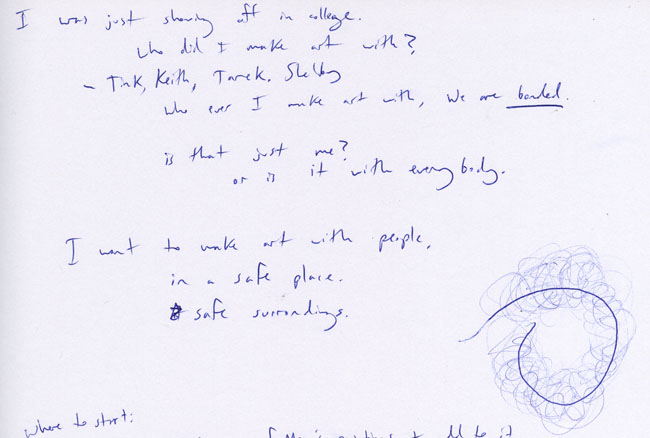 I was just showing off in college.
Who did I make art with?
- Tink, Keith, Tarek, Shelby
Who ever I make art with, we are bonded.
is that just me?
or is it with everybody.
I want to make art with people,
in a safe place.
safe surrondings.
where to start:
to add to it